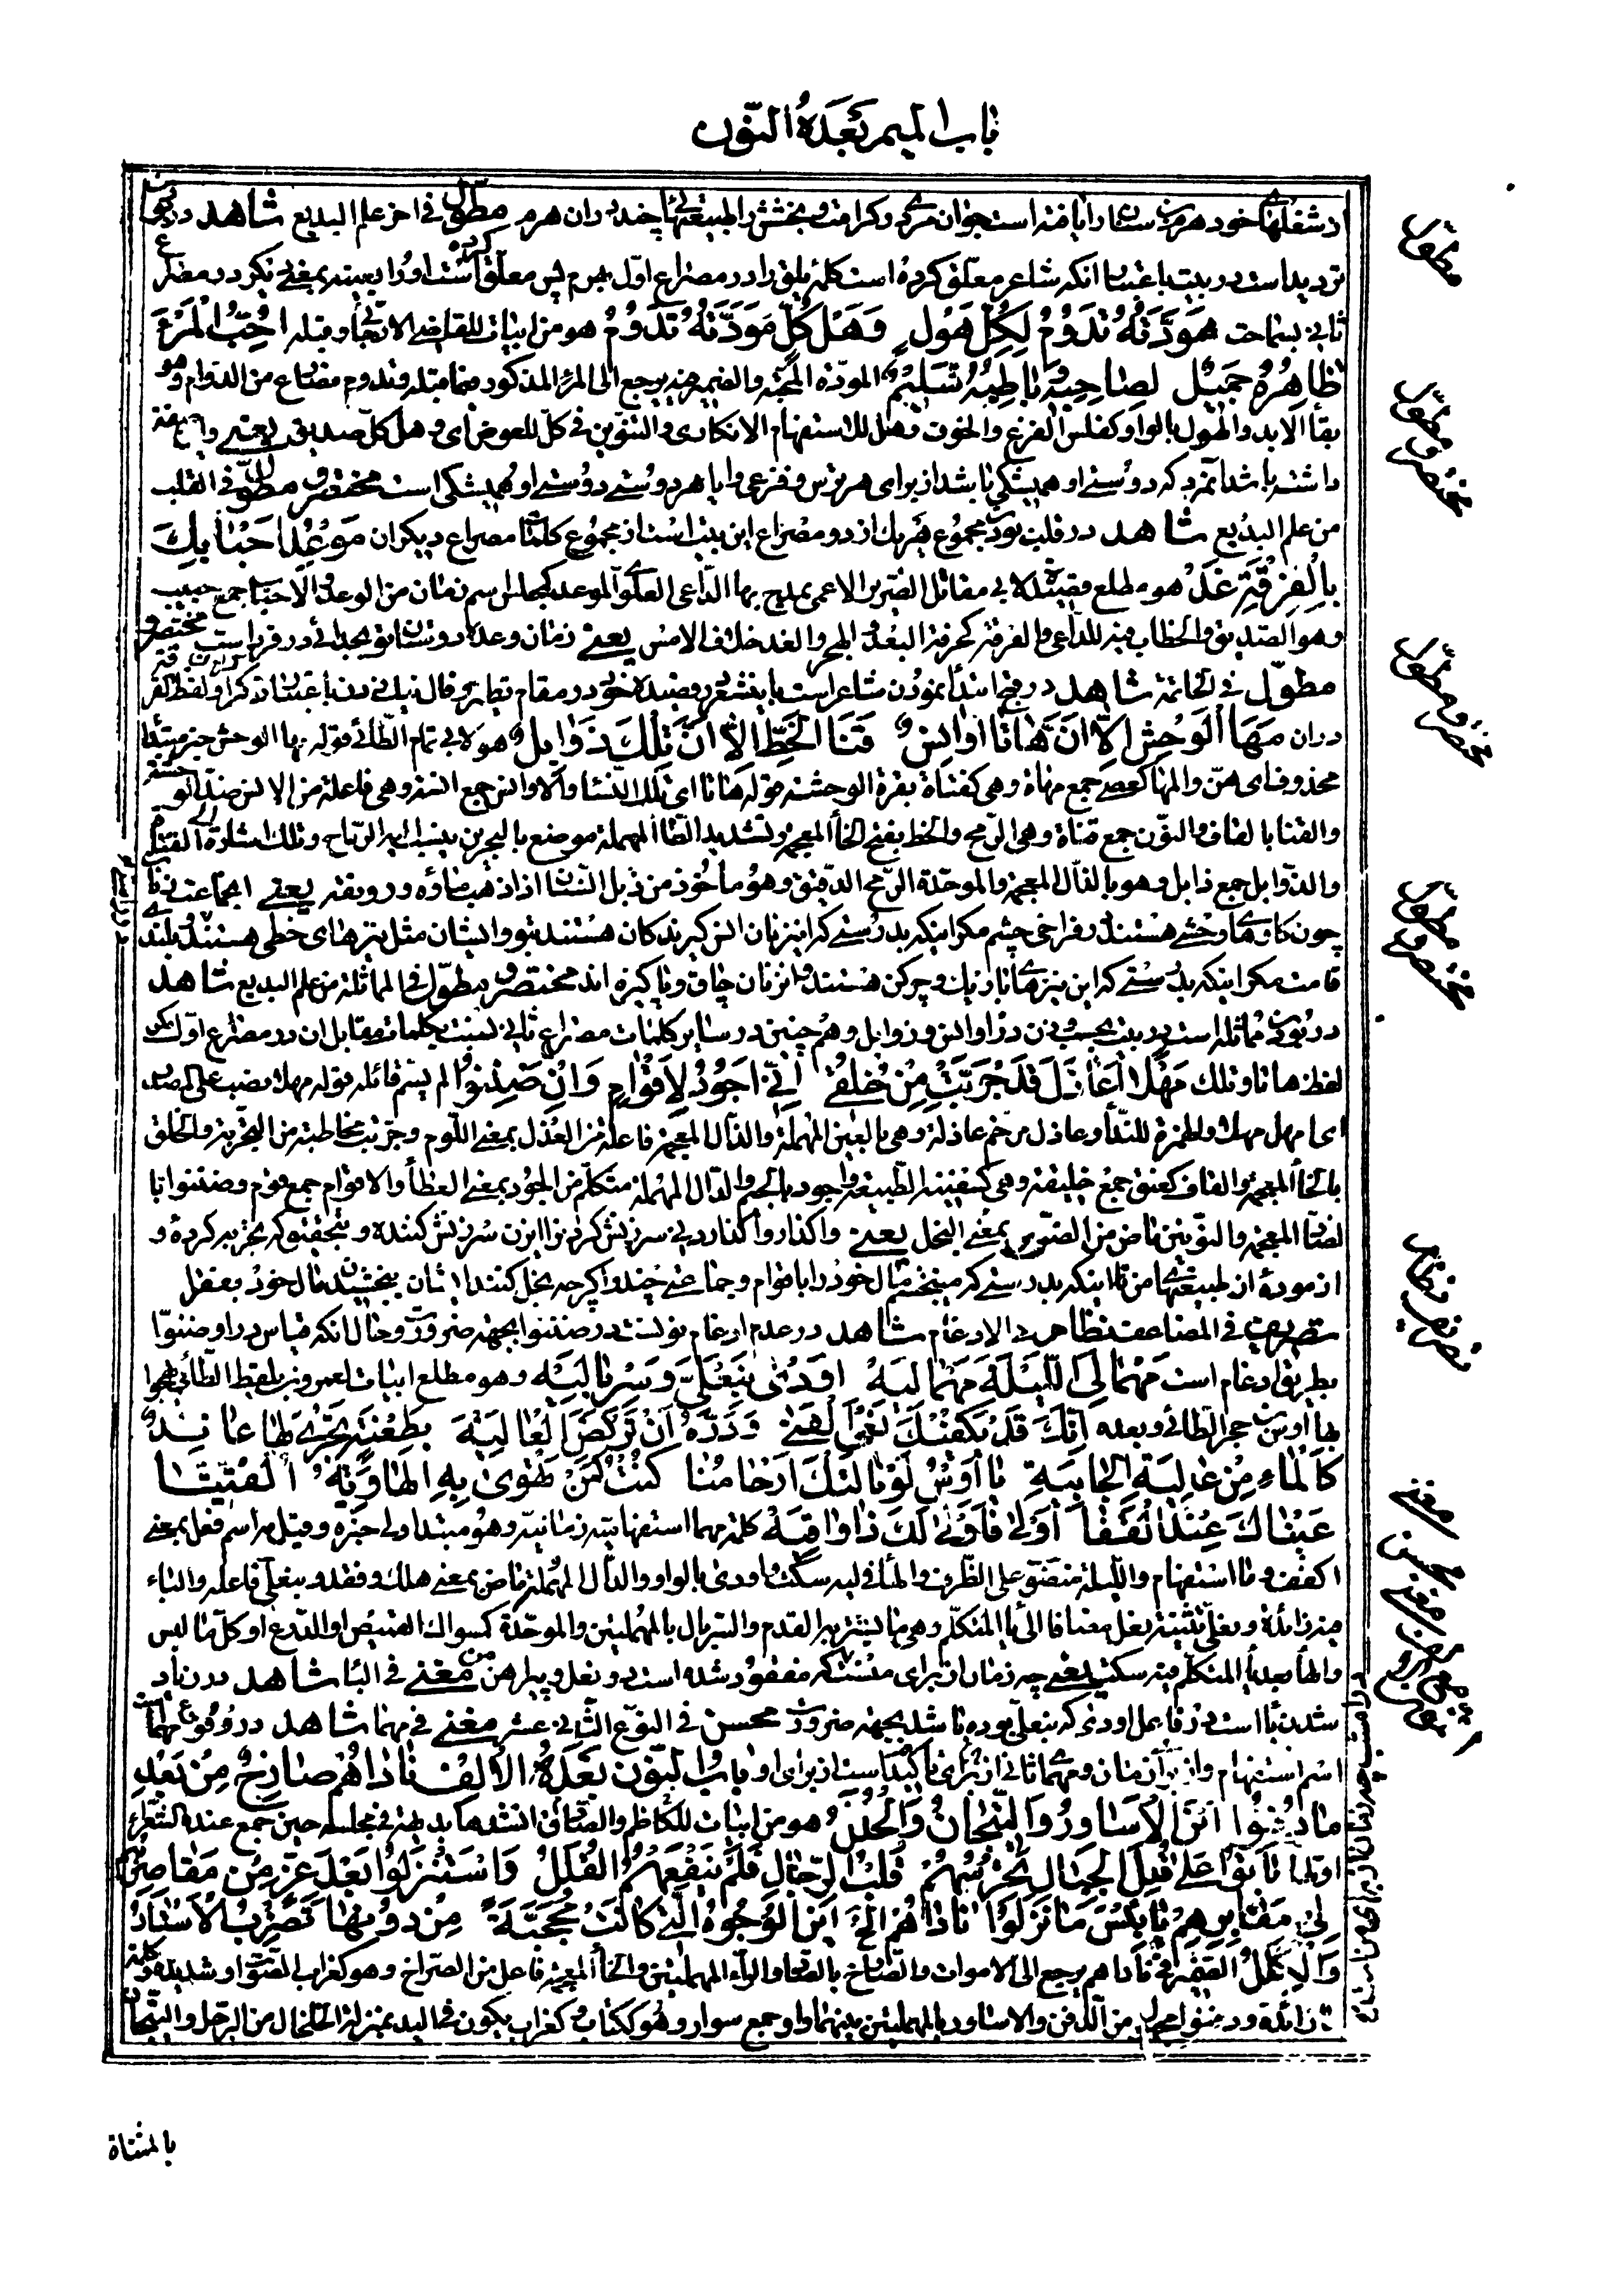 باب الميم بعده النون
خود هرم بن سنان را يافته است جوان مردى و كرامت و بخشش را طبيعتهاى چند در ان هرم مطول فى اخر علم البديع شاهد در
ترديد است در بيت باعتبار انكه شاعر معلق كرده است كلمه يلق را در مصراع اول بهرم پس معلق كرده است او را بعينه بمعنى ديكر در مصراع
ثانى بسماحت مَوَدَّتُهُ تَدُومُ لِكُلِّ هَوْلٍ وَهَلْ كُلٌّ مَوَدَّتُهُ تَدُومُ هو من ابيات للقاضى الارجانى و قبله اُحِبُّ الْمَرْءَ
ظاهِرُهُ جَميلٌ لِصاحِبِهِ باطِنُهُ سَليمٌ المودة المحبة والضمير فيه يرجع الى المرء المذكور فيما قبله وتدوم مضارع من الدوام وهو
بقاء الابد والهول بالواو كفلس الفزع والخوف وهل للاستفهام الانكارى والتنوين فى كل للعوض اى وهل كل صديق يعنى
داشته باشد انمرد كه دوستى او هميشكى باشد از براى هر ترس و فزعى و ايا هر دوستى دوستى او هميشكى است مختصر و مطول فى القلب
من علم البديع شاهد در قلب بودن مجموع هر يك از دو مصراع اين بيت است از مجموع كلمات مصراع ديكر ان مَوْعِدُ اَحْبابِكَ
بِالْفُرْقَةِ غَدٌ هو مطلع قصيدة لابى مقاتل الضرير الاعمى يمدح بها الداعى العلوى الموعد كمجلس اسم زمان من الوعد والاحباب جمع حبيب
وهو الصديق والخطاب فيه للداعى والفرقة كحرفة البعد والهجر والغد خلاف الامس يعنى زمان وعده دوستان تو بجدائى در فردا است مختصر و
مطول فى الخاتمة شاهد در قبح ابتدأ نمودن شاعر است باينشعر در قصيده خود در مقام
دران مَهَا الْوَحْشِ اِلّا اَنَّ هاتا اَوانِسٌ قَنَا الْخَطِّ اِلّا اَنَّ تِلْكَ ذَوابِلٌ هو لابى تمام الطائى قوله مها الوحش خبر مبتدأ
محذوف اى هن والمها كعصى جمع مهاة وهى كفتاة بقرة الوحشية قوله هاتا اى تلك النساء والاوانس جمع انسة وهى فاعلة من الانس ضد الوحشة
والقنا بالقاف والنون جمع قناة وهى الرمح والخط بفتح الخاء المعجمة وتشديد الطاء المهملة موضع بالبحرين ينسب اليه الرماح وتلك اشارة الى القنا
والذوابل جمع ذابل وهو بالذال المعجمة والموحدة الرمح الدقيق وهو مأخوذ من ذبل النبات اذا ذهب ماؤه ورونقه يعنى
چون كاوهاى وحشى هستند در فراخى چشم مكر اينكه بدرستى كه اين زنان انس كيرندكان هستند بتو و ايشان مثل نيزهاى خطى هستند در بلند
قامت مكر اينكه بدرستى كه اين نيزها باريك و چركن هستند و ان زنان چاق و پاكيزه اند مختصر و مطول فى المماثلة من علم البديع شاهد
در بودن مماثله است در بيت بحسب وزن در اوانس و ذوابل و هم چنين در ساير كلمات مصراع ثانى نسبت بكلمات مقابل ان در مصراع اول
لفظ هاتا و تلك مَهْلًا اَعاذِلَ قَدْ جَرَّبْتِ مِنْ خُلُقى اِنّى اَجُودُ لِاَقْوامٍ وَاِنْ ضَنِنُوا لم يسم قائله قوله مهلا نصب على المصدر
اى امهل مهلا والهمزة للنداء وعاذل مرخم عاذلة وهى بالعين المهملة والذال المعجمة فاعلة من العذل بمعنى اللوم وجربت مخاطبة من التجربة والخلق
بالخاء المعجمة والقاف كعنق جمع خليقة وهى كسفينة الطبيعة واجود بالجيم والدال المهملة متكلم من الجود بمعنى العطاء والاقوام جمع قوم وضننوا با
لضاد المعجمة والنونين ماض من الضن بمعنى البخل يعنى واكذار واكذاردنى سرزنش كردن را اى زن سرزنش كننده و بتحقيق كه تجربه كردۀ و
ازمودۀ از طبيعتهاى من تا اينكه بدرستى كه ميبخشم مال خود را باقوام و جماعتى چند و اكرچه بخل كنند ايشان ببخشيدن مال خود بعقل
تصريف فى المضاعف نظام فى الادغام شاهد در عدم ادغام نونست در ضننوا بجهة ضرورت و حال انكه قياس در او ضنوا
بطريق ادغام است مَهْما لِىَ اللَّيْلَةَ مَهْما لِيَهْ اَوْدى بِنَعْلَىَّ وَسِرْبالِيَهْ وهو مطلع ابيات لعمرو بن ملقط الطائى يهجوا
بها اوس بن حجر الطائى و بعده اِنَّكَ قَدْ يَكْفيكَ بَغْىَ الْفَتى وَدَرْءَهُ اَنْ تَرْكُضَ الْعالِيَهْ بِطَعْنَةٍ يَجْرى لَها عانِدٌ
كَالْماءِ مِنْ غائِلَةِ الْجابِيَهْ يا اَوْسُ لَوْ نالَتْكَ اَرْماحُنا كُنْتَ كَمَنْ تَهْوى بِهِ الْهاوِيَهْ اُلْفِيَتا
عَيْناكَ عِنْدَ الْقَفا اَوْلى فَاَوْلى لَكَ ذا واقِيَهْ كلمة مهما استفهامية زمانية وهو مبتدأ ولى خبره وقيل مه اسم فعل بمعنى
اكفف وما استفهام والليلة منتصب على الظرف والهاء فى ليه سكت واودى بالواو والدال المهملة ماض بمعنى هلك وفقد وبنعلى فاعله والباء
فيه زائدة ونعلى تثنية نعل مضافا الى ياء المتكلم وهى ما يستتر به القدم والسربال بالمهملتين والموحدة كسروال القميص او الدرع او كل ما لبس
والهاء بعد ياء المتكلم فيه سكت يعنى چه زمان از براى منست كه مفقود شده است دو نعل و پيراهن من مغنى فى الباء شاهد در زياد
شدن باء است در فاعل اودى كه بنعلى بوده باشد بجهة ضرورت محسن فى النوع الثانى عشر مغنى فى مهما شاهد در وقوع مهما است
اسم استفهام و از براى زمان و مهما ثانى از براى تاكيد است از براى او باب النون بعده الالف ناداهُمْ صارِخٌ مِنْ بَعْدِ
ما دُفِنُوا اَيْنَ الْاَساوِرُ وَالتّيجانُ وَالْحُلَلُ هو من ابيات
باتُوا عَلى قُلَلِ الْجِبالِ تَحْرُسُهُمْ غُلْبُ الرِّجالِ فَلَمْ يَنْفَعْهُمُ الْقُلَلُ وَاسْتُنْزِلُوا بَعْدَ عِزٍّ مِنْ
اِلى مَقابِرِهِمْ يا بِئْسَ ما نَزَلُوا ناداهُمْ الخ اَيْنَ الْوُجُوهُ الَّتى كانَتْ مُحَجَّبَةً مِنْ دُونِها تُضْرَبُ الْاَسْتارُ
وَالْكِلَلُ الضمير فى ناداهم يرجع الى الاموات والصارخ بالصاد والراء المهملتين والخاء المعجمة فاعل من الصراخ وهو كغراب الصوت او شديده
زائدة ودفنوا مجهول من الدفن والاساور بالمهملتين بينهما واو جمع سوار وهو ككتاب كغراب يكون فى اليد بمنزلة الخلخال من الرجل والتيجان
بالمثناة
مطول
مختصر و مطول
مختصر و مطول
مختصر و مطول
تصريف نظام
مغنى
محسن مغنى